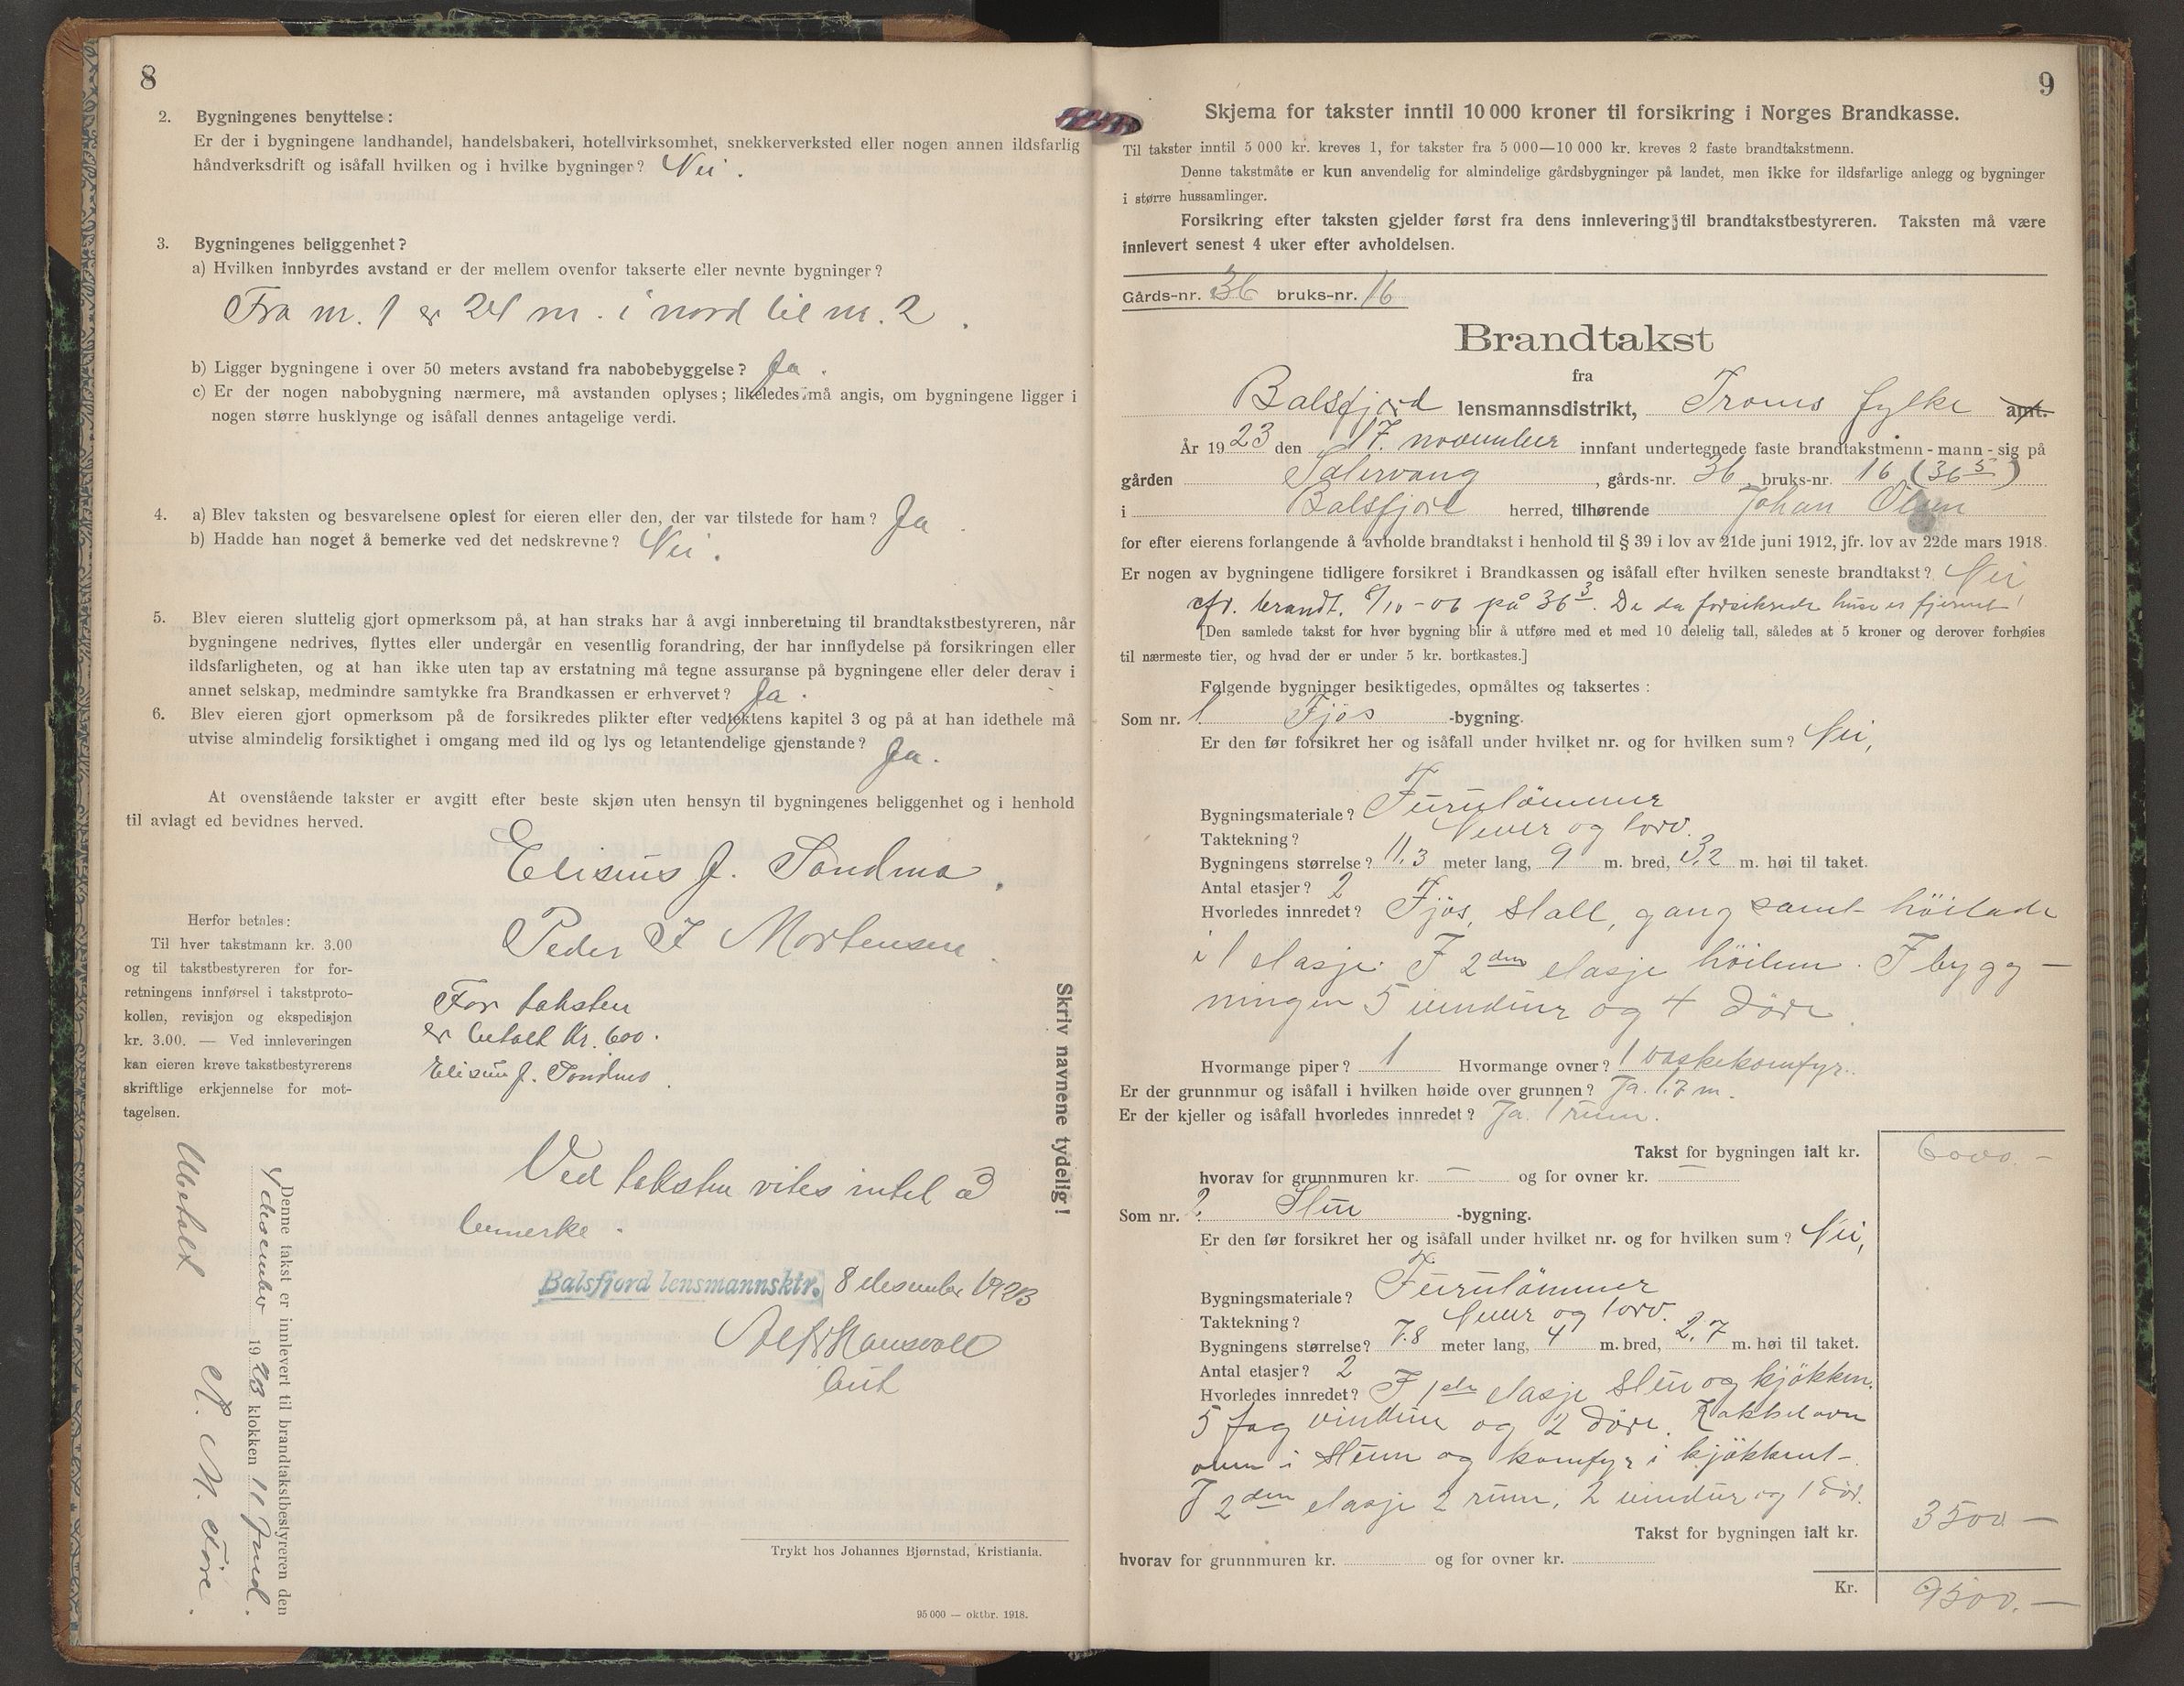 8
2. Bygningenes benyttelse:
Er der i bygningene landhandel, handelsbakeri, hotellvirksomhet, snekkerverksted eller nogen annen ildsfarlig
håndverksdrift og isåfall hvilken og i hvilke bygninger? Nei.
3. Bygningenes beliggenhet?
a) Hvilken innbyrdes avstand er der mellem ovenfor takserte eller nevnte bygninger?
Fra nr. 1 er 24 m. i nord til nr. 2.
b) Ligger bygningene i over 50 meters avstand fra nabobebyggelse? Ja.
c) Er der nogen nabobygning nærmere, må avstanden oplyses; likeledes må angis, om bygningene ligger i
nogen større husklynge og isåfall dennes antagelige verdi.
4. a) Blev taksten og besvarelsene oplest for eieren eller den, der var tilstede for ham? Ja.
b) Hadde han noget å bemerke ved det nedskrevne? Nei.
5. Blev eieren sluttelig gjort opmerksom på, at han straks har å avgi innberetning til brandtakstbestyreren, når
bygningene nedrives, flyttes eller undergår en vesentlig forandring, der har innflydelse på forsikringen eller
ildsfarligheten, og at han ikke uten tap av erstatning må tegne assuranse på bygningene eller deler derav i
annet selskap, medmindre samtykke fra Brandkassen er erhvervet? Ja.
6. Blev eieren gjort opmerksom på de forsikredes plikter efter vedtektens kapitel 3 og på at han idethele må
utvise almindelig forsiktighet i omgang med ild og lys og letantendelige gjenstande? Ja.
At ovenstående takster er avgitt efter beste skjøn uten hensyn til bygningenes beliggenhet og i henhold
til avlagt ed bevidnes herved.
Eliseus J. Sandmo.
Peder I Mortensen.
Herfor betales:
Til hver takstmann kr. 3.00
og til takstbestyreren for for-
retningens innførsel i takstproto-
kollen, revisjon og ekspedisjon
kr. 3.00. — Ved innleveringen
kan eieren kreve takstbestyrerens
skriftlige erkjennelse for mot-
tagelsen.
For taksten
er betalt Kr. 600.
Eliseus J. Sandmo.
Ved taksten vites intet å
bemerke.
Balsfjord lensmannsktr. 8 desember 1923
aut
Skriv navnene tydelig!
Denne takst er innlevert til brandtakstbestyreren den
4 desember 1923 klokken 11 fmd.
Ubetalt
Trykt hos Johannes Bjørnstad, Kristiania.
95 000 — oktbr. 1918.
9
Skjema for takster inntil 10 000 kroner til forsikring i Norges Brandkasse.
Til takster inntil 5 000 kr. kreves 1, for takster fra 5 000—10 000 kr. kreves 2 faste brandtakstmenn.
Denne takstmåte er kun anvendelig for almindelige gårdsbygninger på landet, men ikke for ildsfarlige anlegg og bygninger
i større hussamlinger.
Forsikring efter taksten gjelder først fra dens innlevering til brandtakstbestyreren. Taksten må være
innlevert senest 4 uker efter avholdelsen.
Gårds-nr. 36 bruks-nr. 16
Brandtakst
fra
Balsfjord lensmannsdistrikt, Troms fylke amt.
År 1923 den 17. november innfant undertegnede faste brandtakstmenn - mann - sig på
gården Salervang, gårds-nr. 36, bruks-nr. 16 (36 5)
i Balsfjord herred, tilhørende Johan Olsen
for efter eierens forlangende å avholde brandtakst i henhold til § 39 i lov av 21de juni 1912, jfr. lov av 22de mars 1918.
Er nogen av bygningene tidligere forsikret i Brandkassen og isåfall efter hvilken seneste brandtakst? Nei
cfr. brandt. 8/10-06 på 36 3. De da forsikrede huse er fjernet!
[Den samlede takst for hver bygning blir å utføre med et med 10 delelig tall, således at 5 kroner og derover forhøies
til nærmeste tier, og hvad der er under 5 kr. bortkastes.]
Følgende bygninger besiktigedes, opmåltes og taksertes:
Som nr. 1 Fjös -bygning.
Er den før forsikret her og isåfall under hvilket nr. og for hvilken sum? Nei,
Bygningsmateriale? Furutömmer
Taktekning? Never og torv.
Bygningens størrelse? 11,3 meter lang, 9 m. bred, 3,2 m. høi til taket.
Antal etasjer? 2
Hvorledes innredet? Fjös, stall, gang samt höilade
i 1 etasje. I 2den etasje höilem. I bygg-
ningen 5 vinduer og 4 döre.
Hvormange piper? 1 Hvormange ovner? 1 vaskekomfyr.
Er der grunnmur og isåfall i hvilken høide over grunnen? Ja. 1,7 m.
Er der kjeller og isåfall hvorledes innredet? Ja. 1 rum.
Takst for bygningen ialt kr. 6000.-
hvorav for grunnmuren kr. — og for ovner kr. —
Som nr. 2. Stue -bygning.
Er den før forsikret her og isåfall under hvilket nr. og for hvilken sum? Nei,
Bygningsmateriale? Furutömmer
Taktekning? Never og torv.
Bygningens størrelse? 7.8 meter lang, 4 m. bred, 2,7 m. høi til taket.
Antal etasjer? 2
Hvorledes innredet? I 1ste etasje stue og kjökken.
5 fag vindue og 2 döre. Kakkelovn
ovn i stuen og komfyr i kjökkenet-.
I 2den etasje 2 rum, 2 vinduer og 1 dör.
Takst for bygningen ialt kr. 3500 —
hvorav for grunnmuren kr. og for ovner kr.
Kr. 9500.—